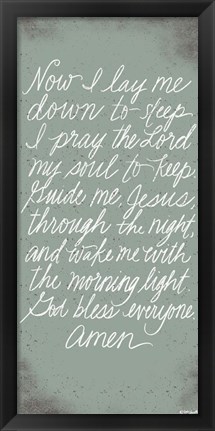 Now I lay me
down to sleep
I pray the Lord
my soul to keep.
Guide me, Jesus,
through the night,
and wake me with
the morning light.
God bless everyone,
amen